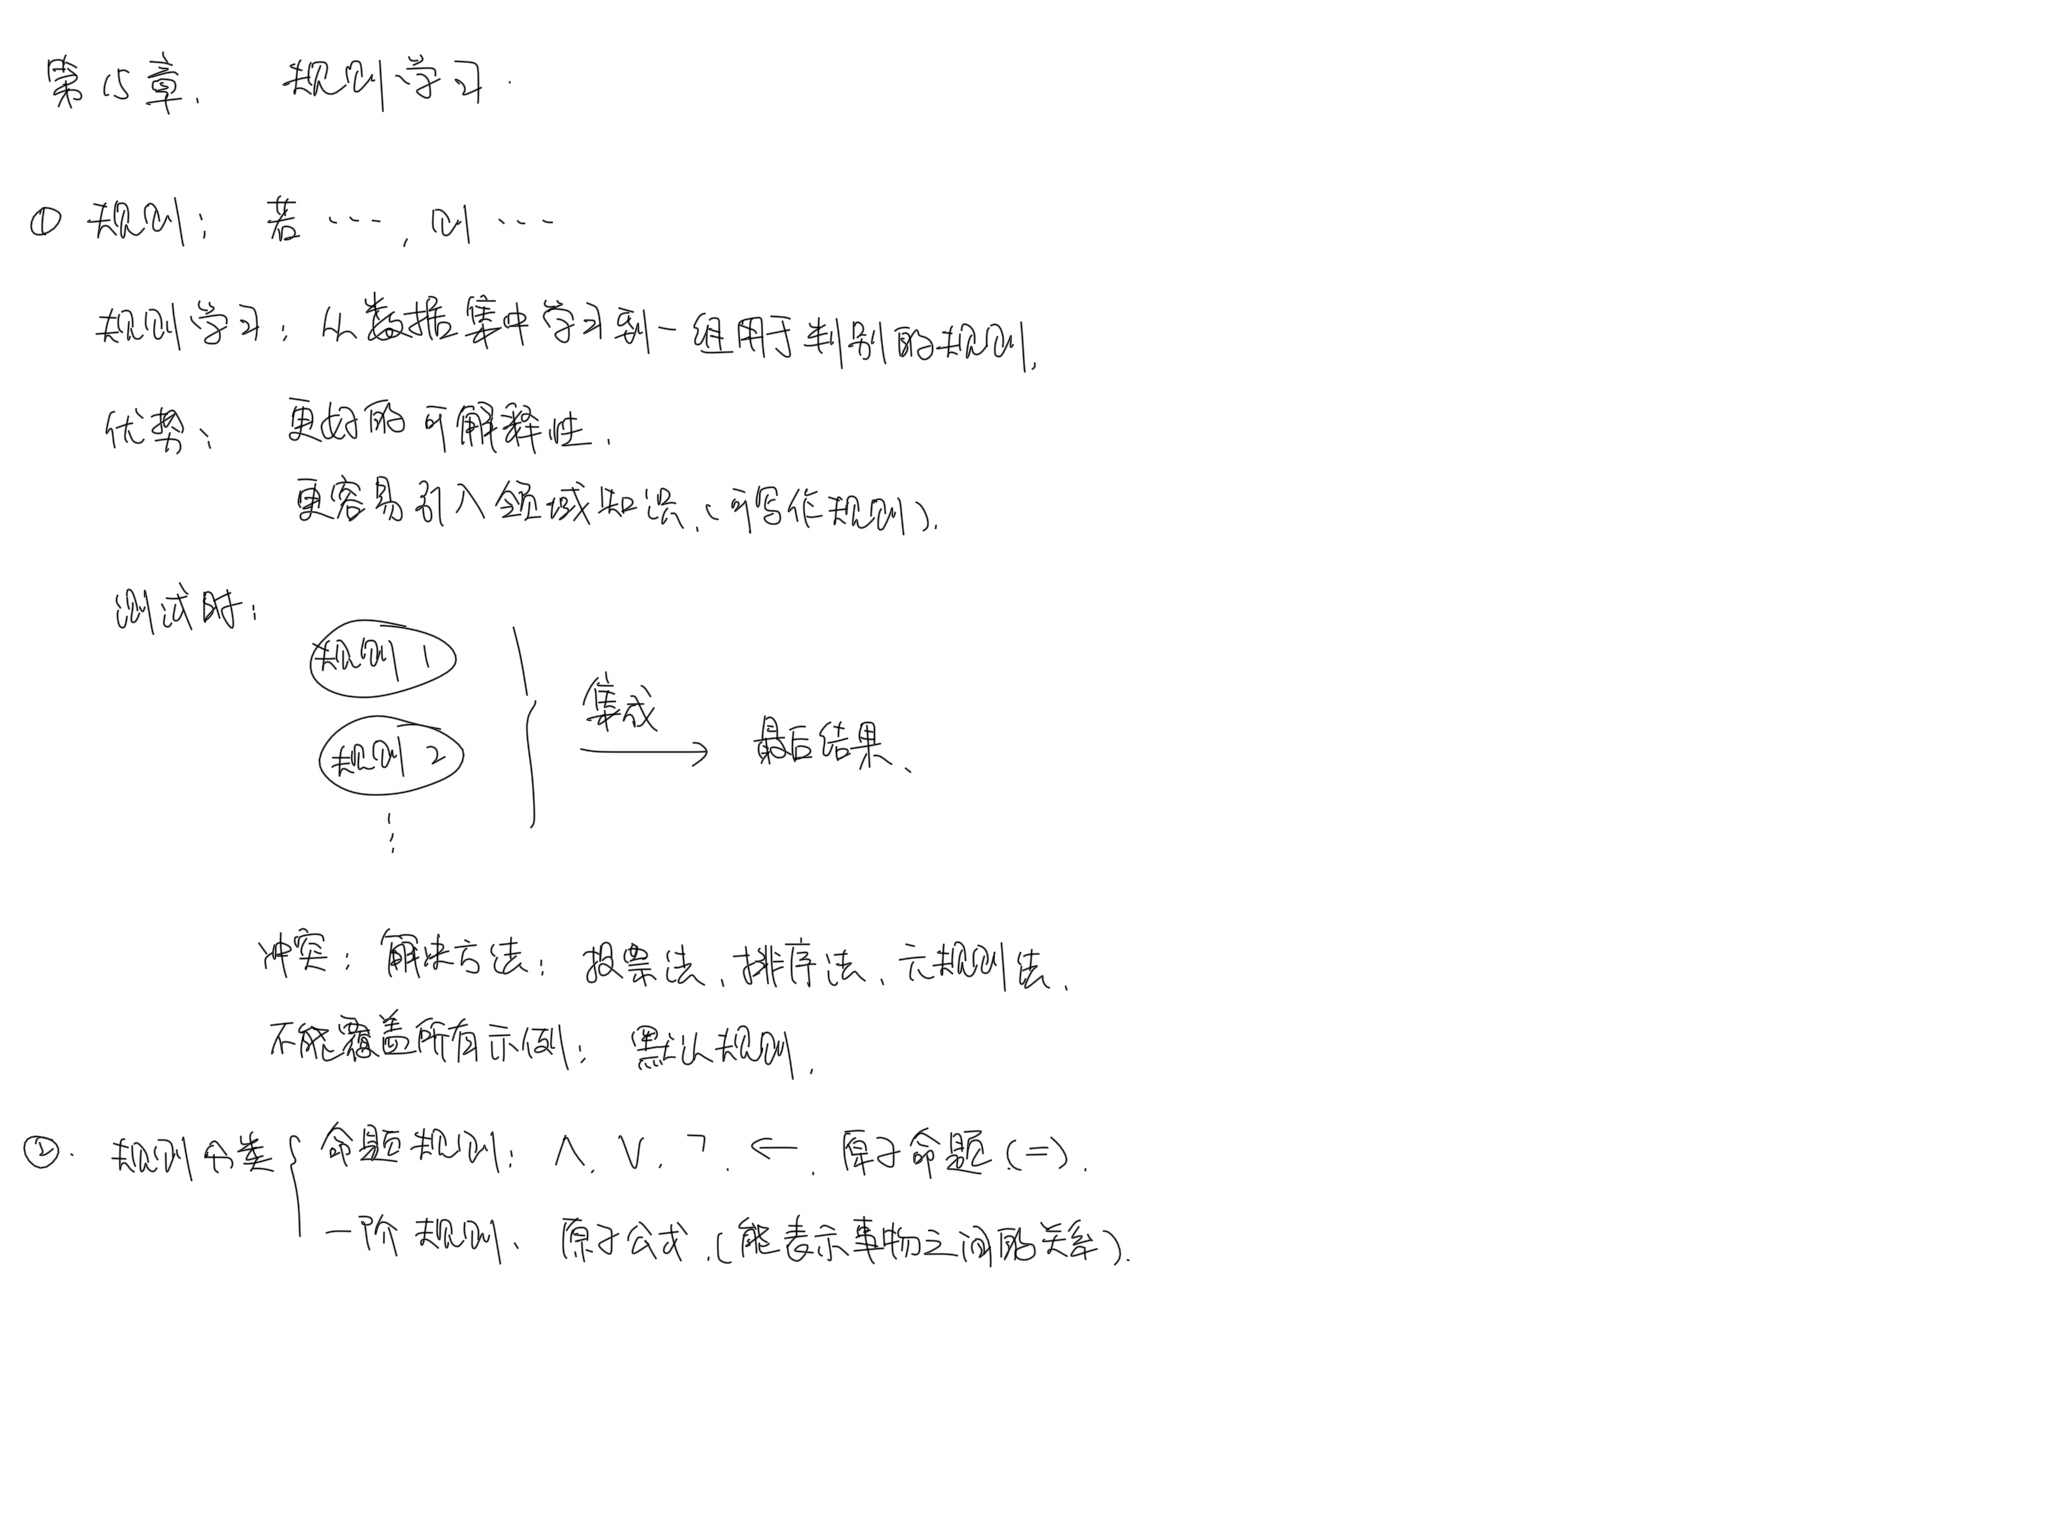 第15章. 规则学习.
① 规则: 若……, 则……
规则学习: 从数据集中学习到一组用于判别的规则.
优势: 更好的可解释性.
更容易引入领域知识.(可写作规则).
测试时:
规则1
规则2
⋮
集成
最后结果、
冲突: 解决方法: 投票法、排序法、元规则法.
不能覆盖所有示例: 默认规则.
②. 规则分类
命题规则: ∧. ∨. ¬. ←. 原子命题(=).
一阶规则、原子公式.(能表示事物之间的关系).